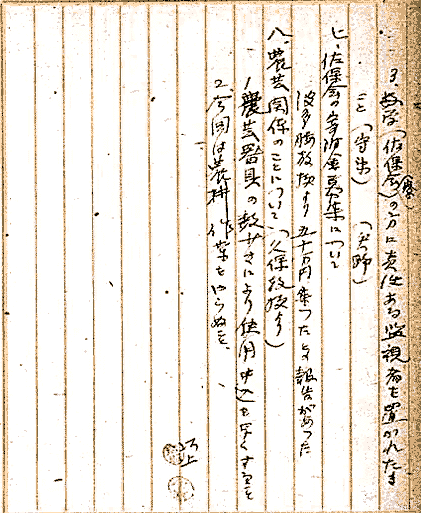 3. 教官（佐保会（寮））の方に責任ある監視者を置かれたき
こと（守衛）
七、佐保会の寄附金募集について
波多腰教授より五十万円集つたと報告があつた
八、農芸関係のことについて（久保教授より）
1. 農芸器具の数少きにより使用申込を早くすること
2. 今回は農耕作業をやらぬこと、
以上